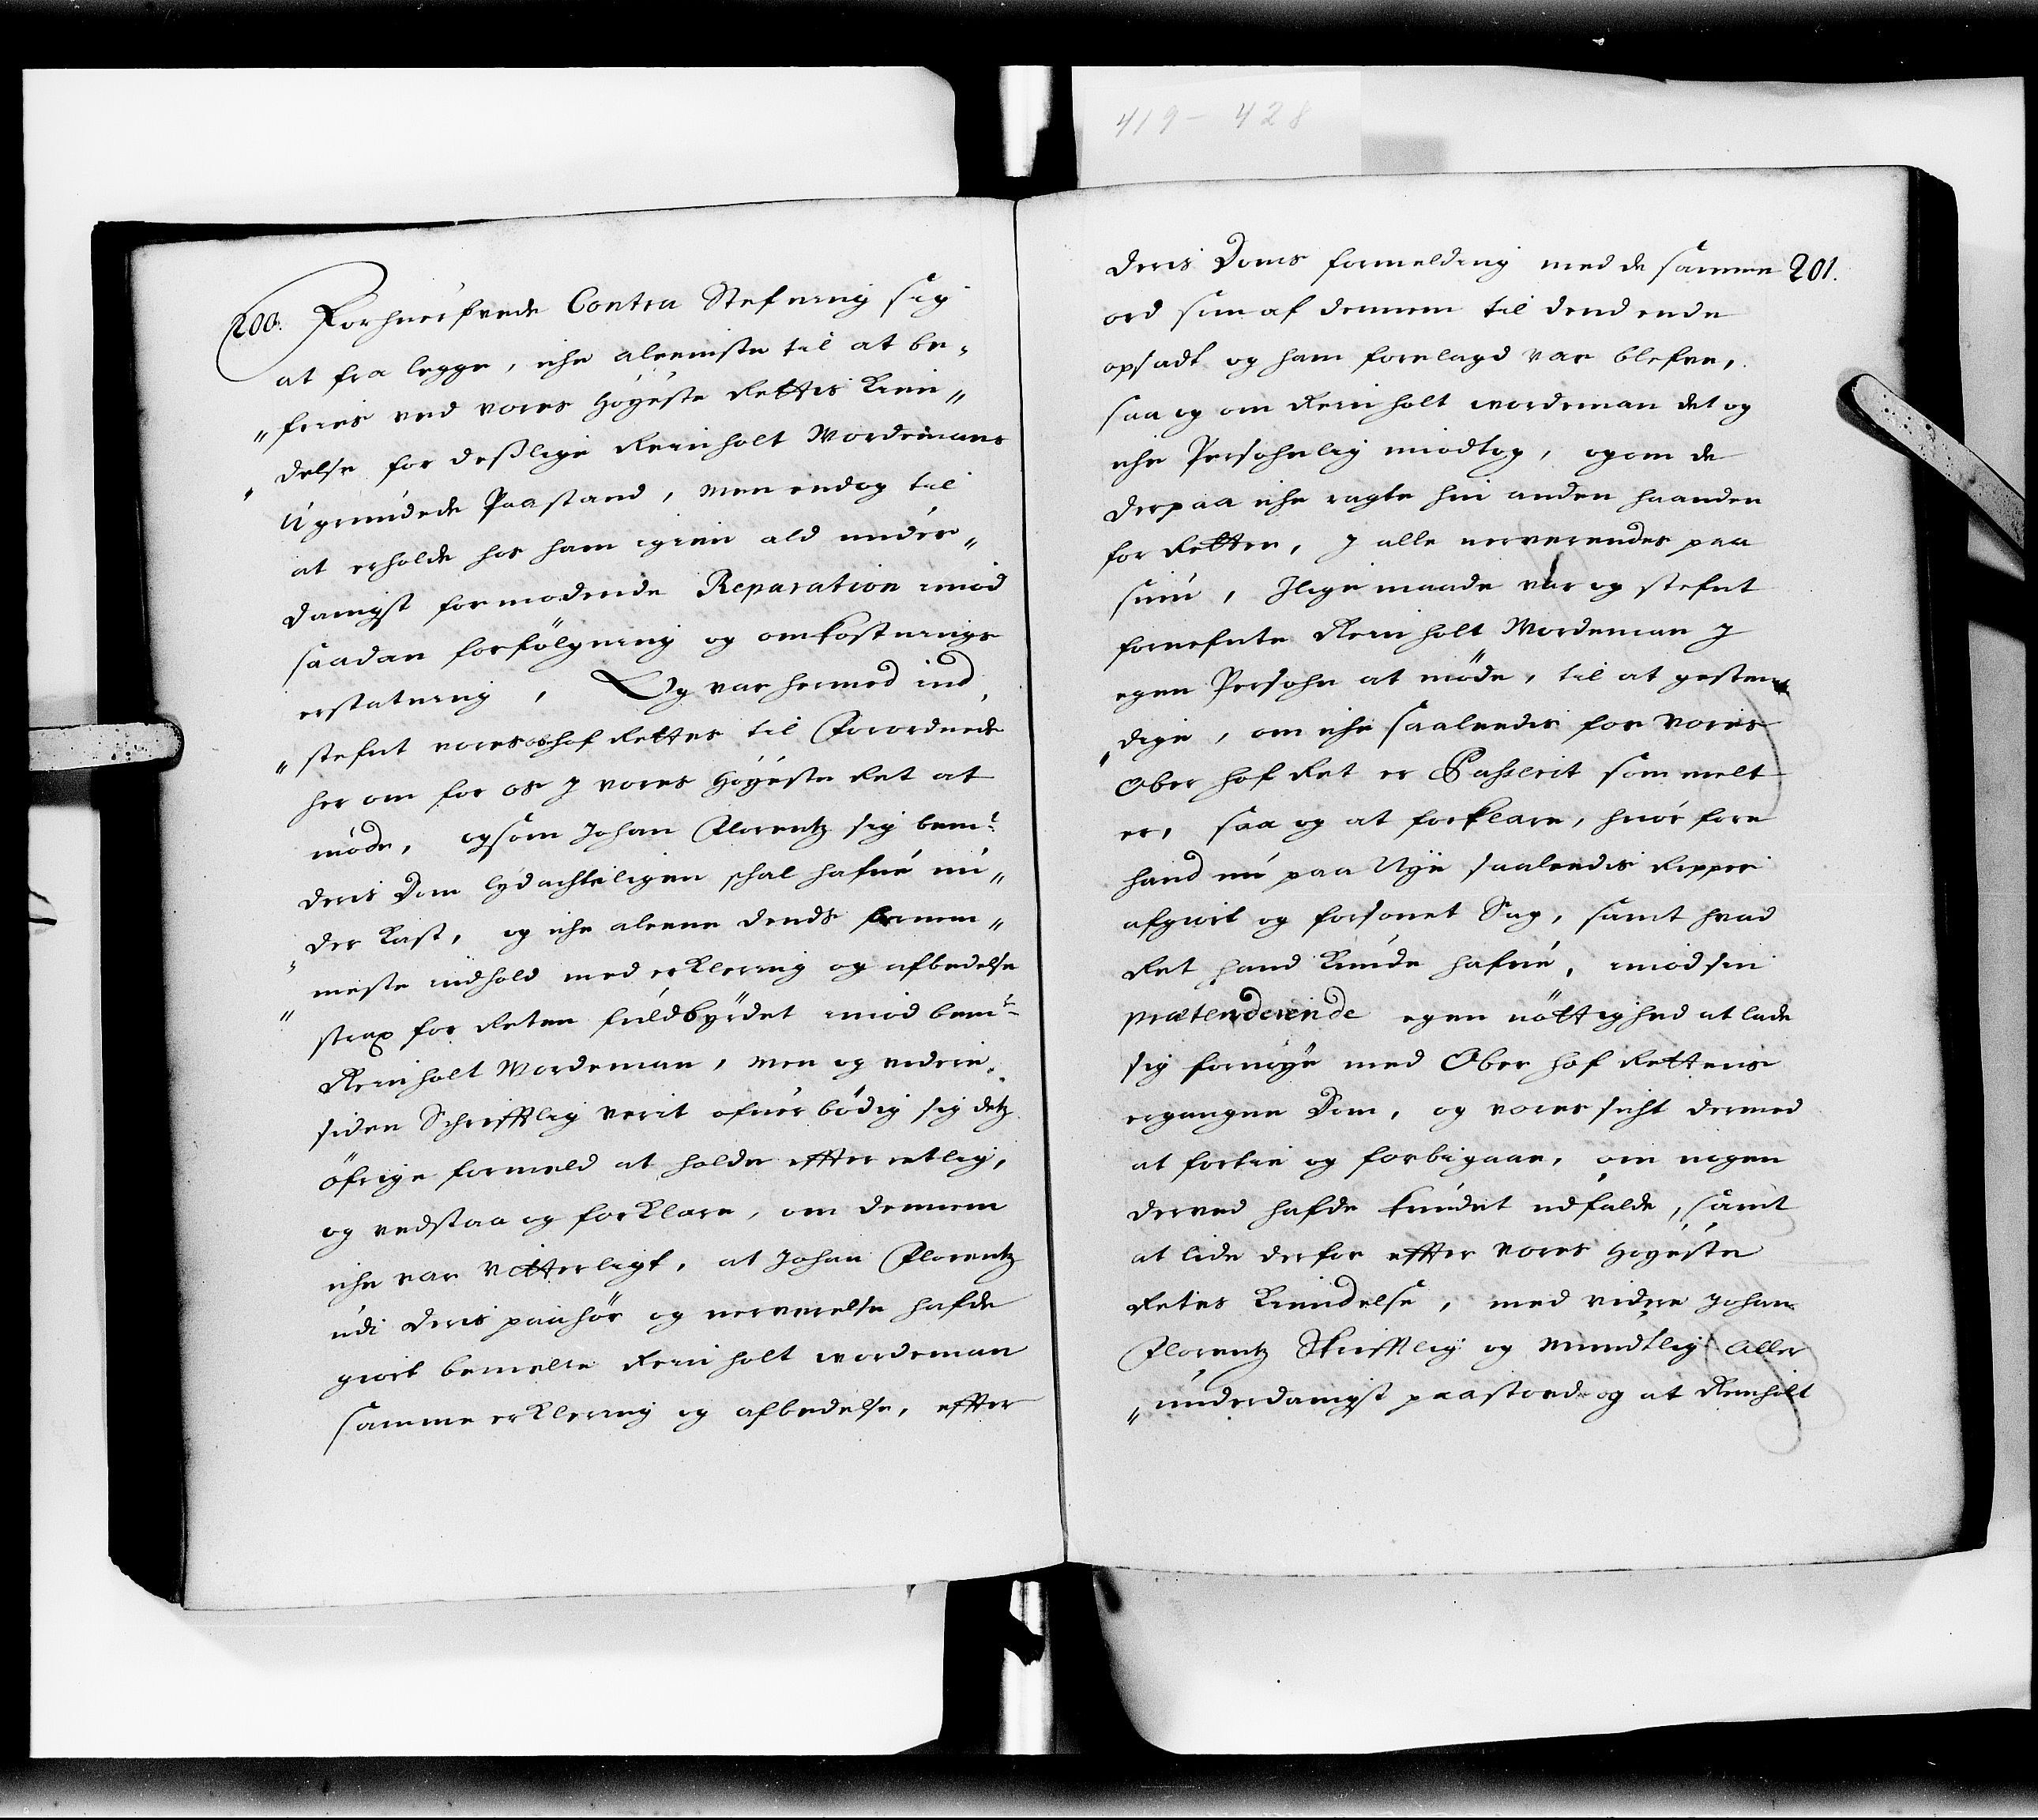 419 - 428
200. Forhuerfvede Contra Stefning sig
at fra legge, iche aleeniste til at be,
„fries ved vores Höyeste Rettis Kien„
„delse for deslige Reinholt Wordemans
Ugrundede Paastand, men endog til
at erholde hos ham igien ald under„
danigst formodende Reparation imod
saadan forfölgning og omkostnings
erstatning, Og var hermed ind„
„stefnt vores obhof Rettes til Forordnede
her om for os J vores Höyeste Ret at
möde, og som Johan Florentz sig bem:te
deris Dom lydachteligen schal hafve un„
„der kast, og iche aleene dends fornem„
„meste indhold med erklering og afbedelse
strax for Reten fuldbyrdet imod bem:te
Reinholt Wordeman, men og videre
siden Schrifftlig verit ofverbödig sig detz
öfrige formeld at holde effterretlig,
og vedstaa og forklare, om dennem
iche var vitterligt, at Johan Florentz
udi deris paahör og nerverelse hafde
giort bemelte Reinholt wordeman
samme erklering og afbedelse, effter
deris Doms formelding med de samme 201.
ord som af dennem til dend ende
opsadt og ham forelagd var blefven,
saa og om Reinholt wordeman det og
iche Persohnlig imodtog, og om de
derpaa iche ragte hin anden haanden
for Retten, J alle nerverendes paa
siun, Jlige maade var og stefnt
fornefnte Reinholt Wordeman J
egen Persohn at möde, til at gesten
„dige, om iche saaleedis for Vores
Ober hof Ret er Passerit som melt
er, saa og at forklare, huor fore
hand nu paa Nye saaleedis Ripper
afgiort og forsonet Sag, samt hvad
Ret hand kunde hafve, imod sin
prætenderende egen nöttighed at lade
sig fornöye med Ober hof Rettens
ergangne Dom, og vores sicht dermed
at fortie og forbigaae, om nogen
derved hafde kundet udfalde, samt
at lide derfor effter Vores Höyeste
Retes Kiendelse, med videre Johan
Florentz Skrifftlig og Mundtlig Aller
„underdanigst paastoed og at Reinholt